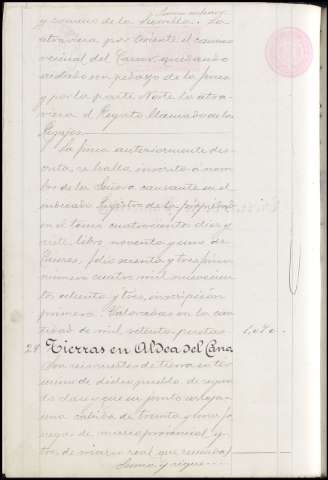 y camino de la
atraviesa por Oriente el camino
vecinal del Casar, quedando
aislado un pedazo de la finca
y por la parte Norte la atra-
viesa el Regato llamado de los
La finca anteriormente des-
crita, se halla inscrita á nom-
bre de la Señora causante en el
indicado Registro de la propiedad
en el tomo cuatrocientos diez y
siete, libro noventa y uno de
Cáceres, folio sesenta y tres, finca
número cuatro mil novecien-
tos ochenta y tres, inscripción
primera. Valoradas en la can-
tidad de mil setenta pesetas. 1,070.
24 Tierras en Aldea del Cano
Son suertes de tierra en tér-
mino de dicho pueblo de segun-
da clase que en junto
una cabida de treinta y una fa-
negas de marco provincial y
de marco real que
Suma y sigue